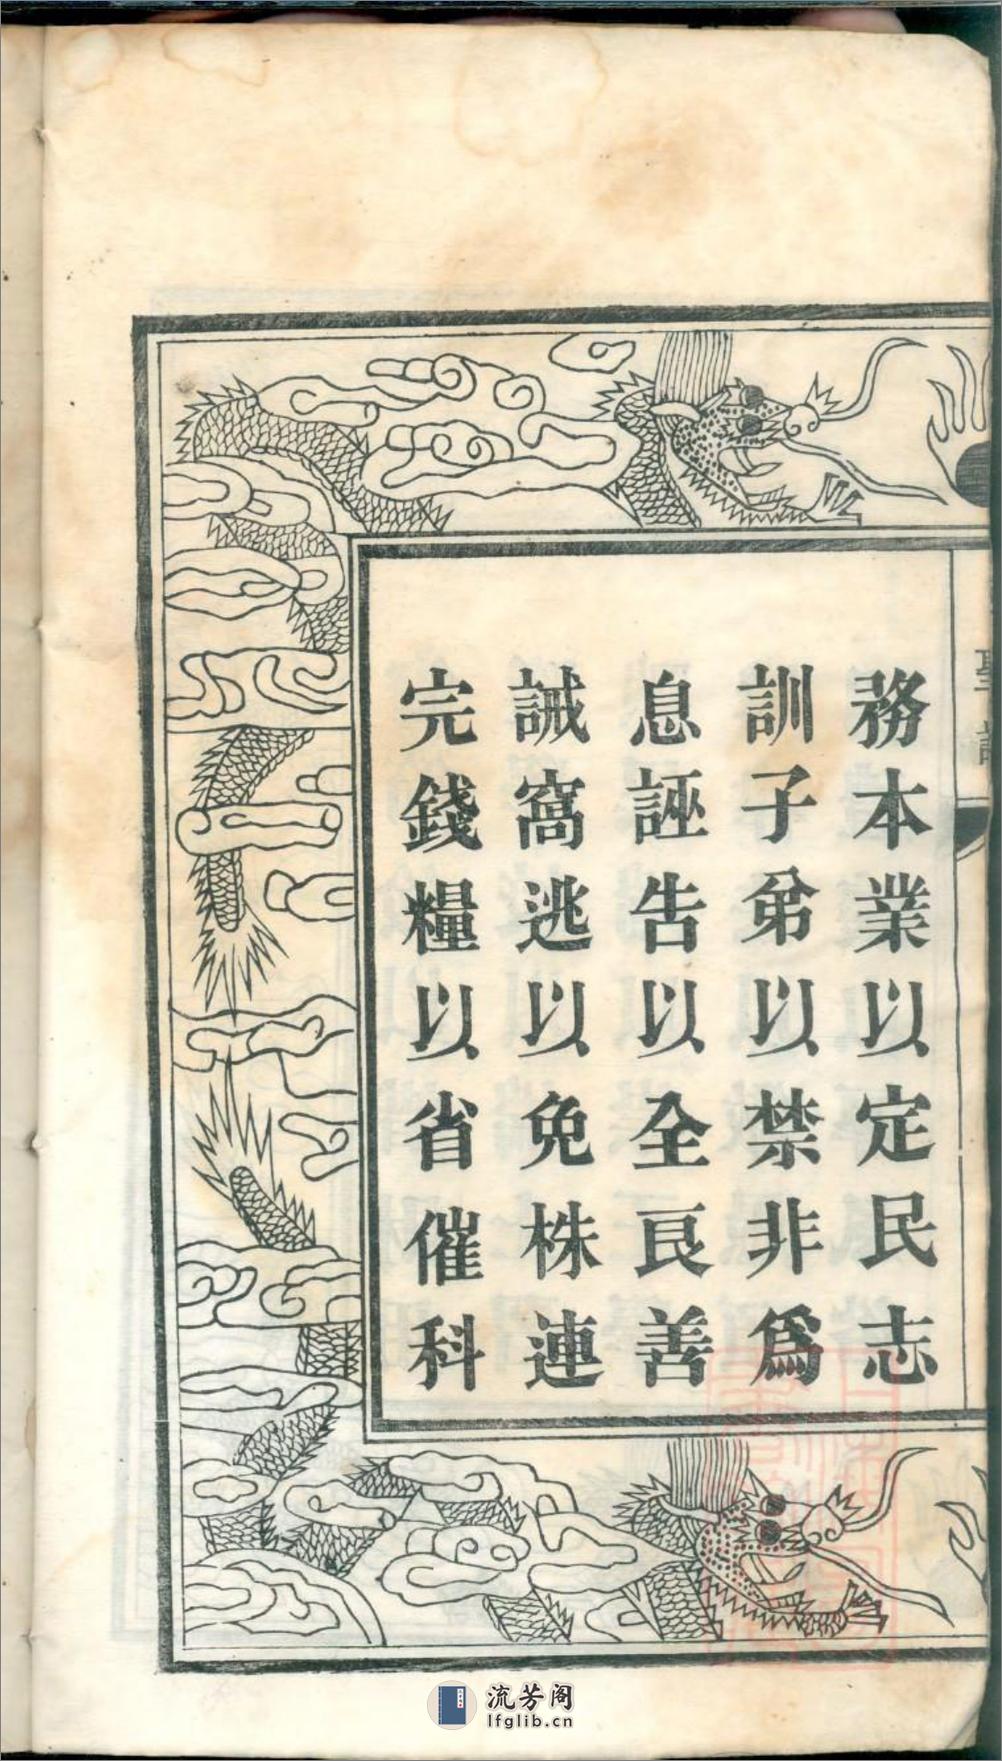 務本業以定民志
訓子弟以禁非爲
息誣告以全良善
誡窩逃以免株連
完錢糧以省催科
流芳阁
lfglib.cn